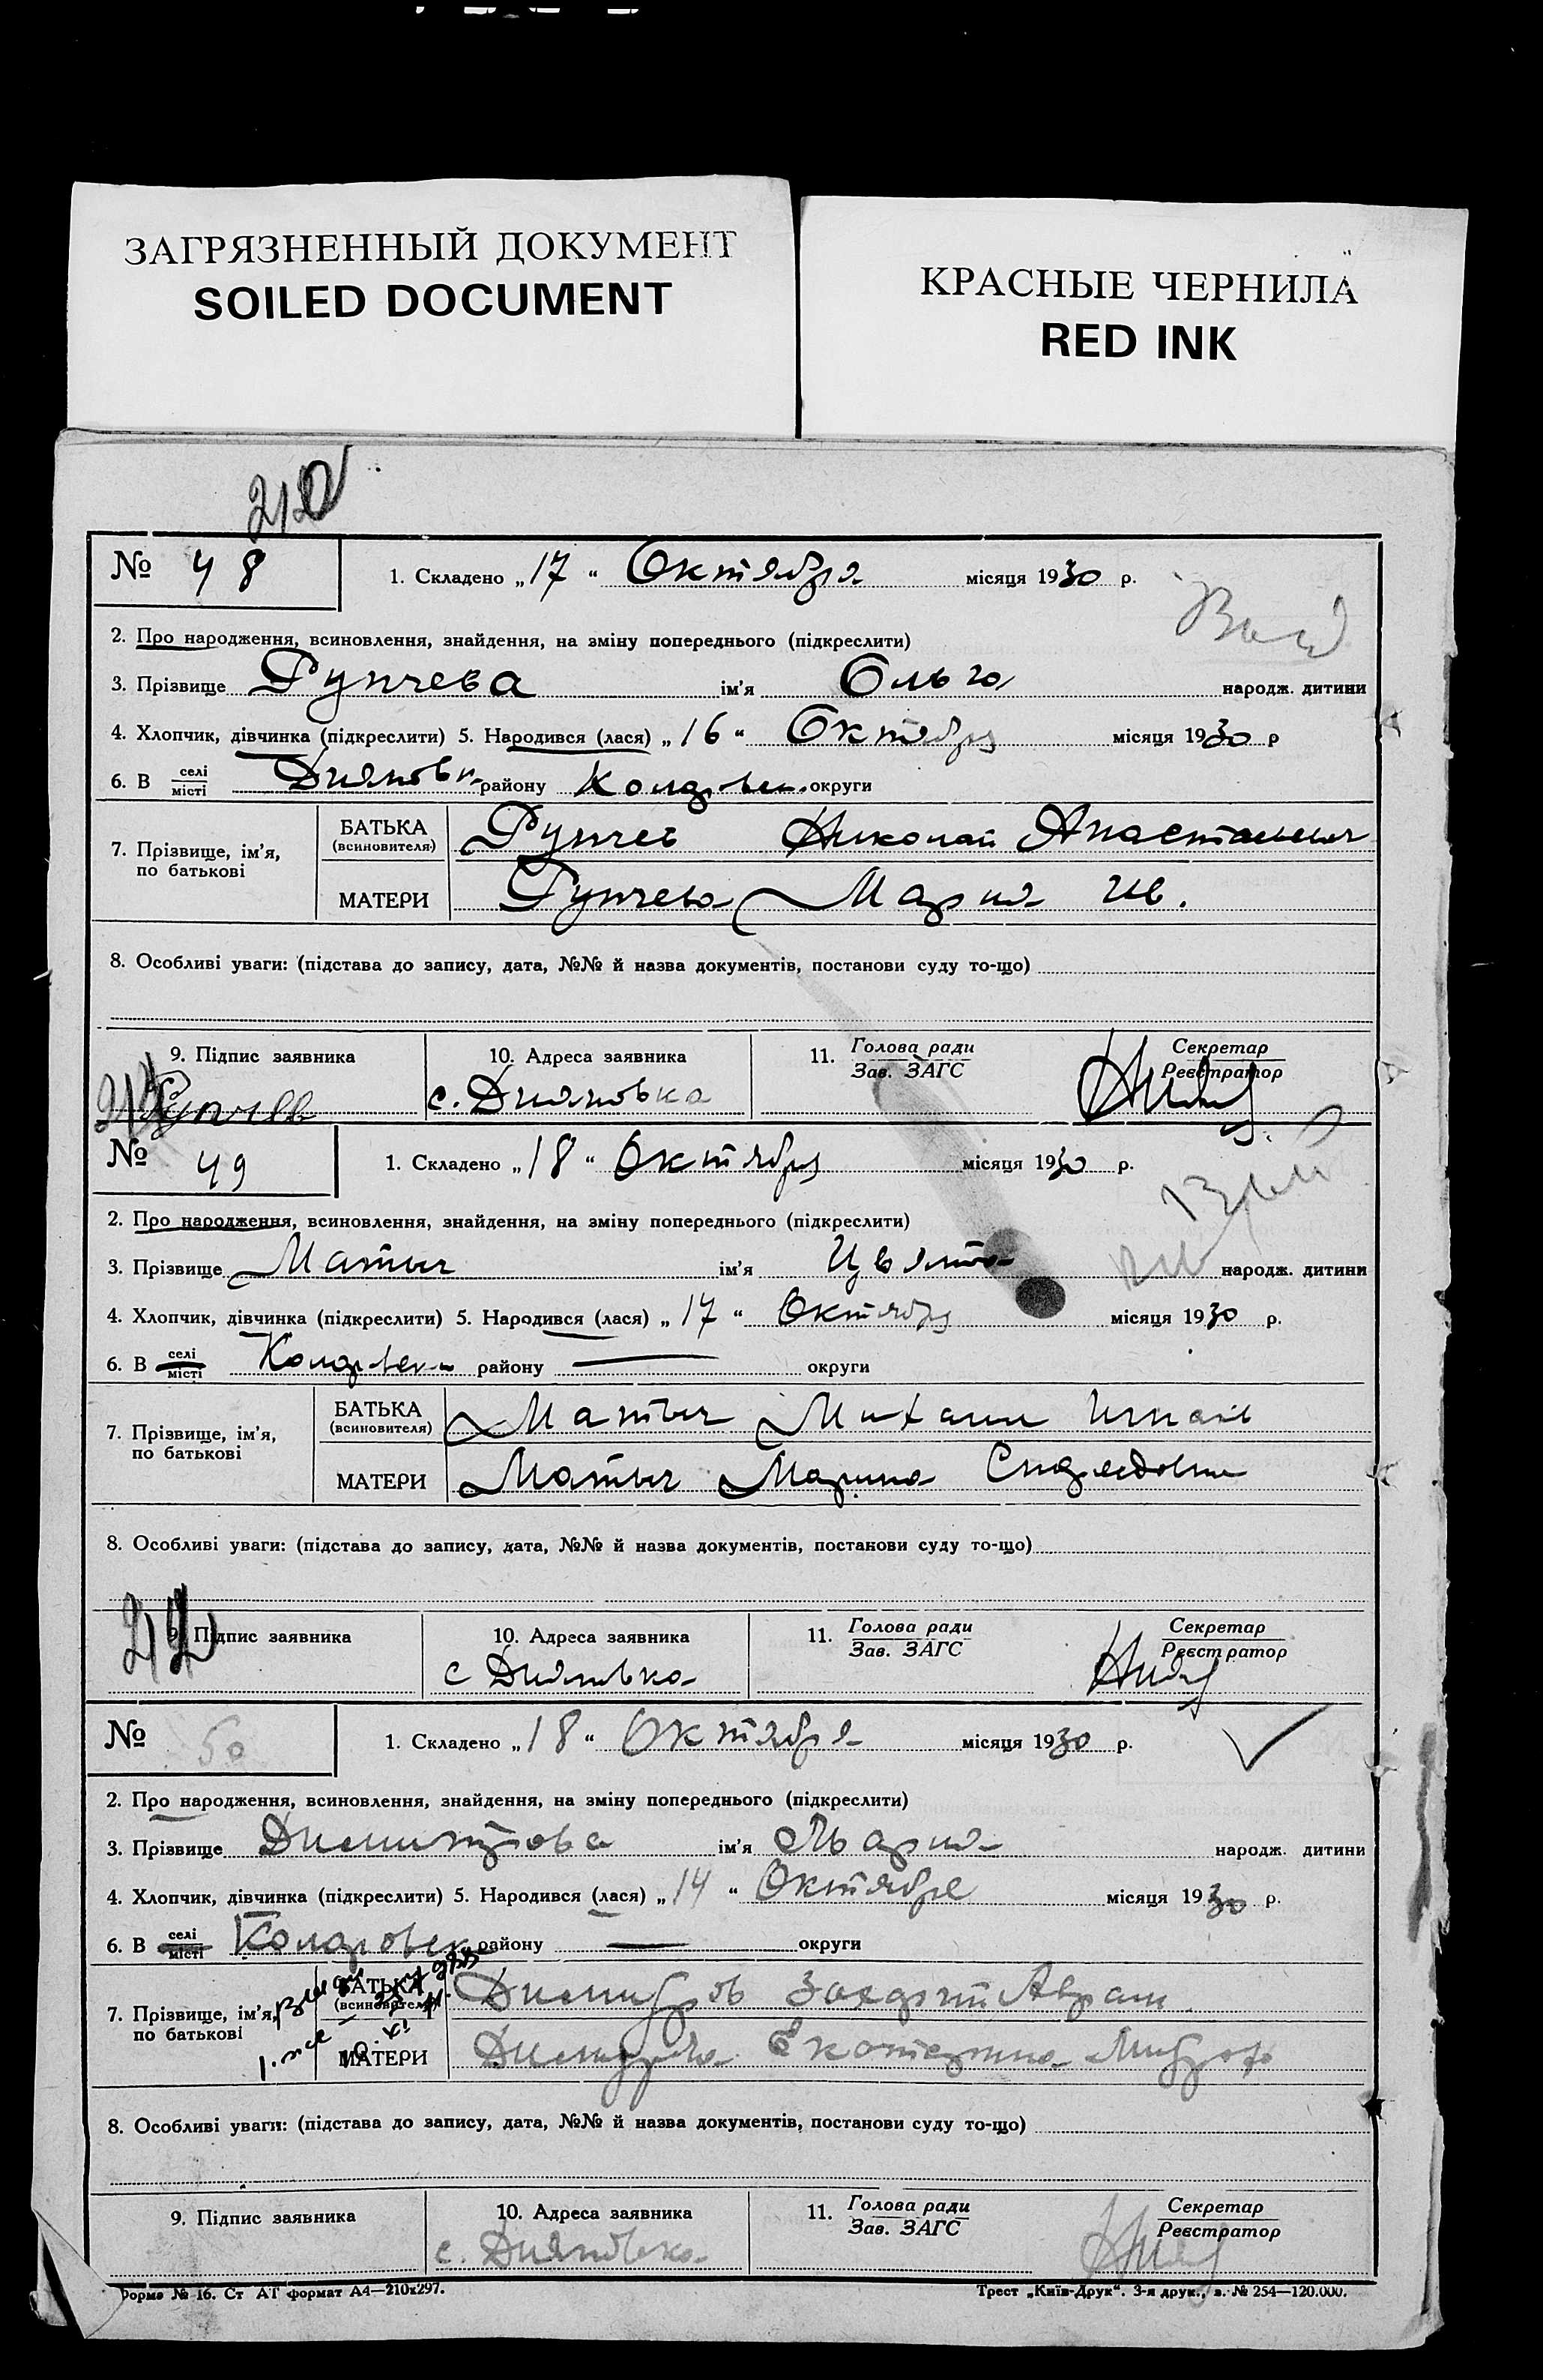 ЗАГРЯЗНЕННЫЙ ДОКУМЕНТ
SOILED DOCUMENT
КРАСНЫЕ ЧЕРНИЛА
RED INK
№ 48
1. Складено „17“ Октября місяця 1930 р.
2. Про народження, всиновлення, знайдення, на зміну попереднього (підкреслити)
3. Прізвище Рупчева ім'я Ольга народж. дитини
4. Хлопчик, дівчинка (підкреслити) 5. Народився (лася) „16“ Октября місяця 1930 р
6. В селі місті Дияновка району округи
7. Прізвище, ім'я, по батькові
БАТЬКА (всиновителя) Рупчев Николай
МАТЕРИ Рупчева Мария Ив.
8. Особливі уваги: (підстава до запису, дата, №№ й назва документів, постанови суду то-що)
9. Підпис заявника
Рупчев
10. Адреса заявника
с. Дияновка
11. Голова ради
Зав. ЗАГС
Секретар
Реєстратор
№ 49
1. Складено „18“ Октября місяця 1930 р.
2. Про народження, всиновлення, знайдення, на зміну попереднього (підкреслити)
3. Прізвище ім'я Цвята народж. дитини
4. Хлопчик, дівчинка (підкреслити) 5. Народився (лася) „17“ Октября місяця 1930 р.
6. В селі місті району — округи
7. Прізвище, ім'я, по батькові
БАТЬКА (всиновителя) Михаил
МАТЕРИ Марина
8. Особливі уваги: (підстава до запису, дата, №№ й назва документів, постанови суду то-що)
9. Підпис заявника
10. Адреса заявника
с Дияновка
11. Голова ради
Зав. ЗАГС
Секретар
Реєстратор
№ 50
1. Складено „18“ Октября місяця 1930 р.
2. Про народження, всиновлення, знайдення, на зміну попереднього (підкреслити)
3. Прізвище Димитрова ім'я Мария народж. дитини
4. Хлопчик, дівчинка (підкреслити) 5. Народився (лася) „14“ Октября місяця 1930 р.
6. В селі місті району — округи
7. Прізвище, ім'я, по батькові
БАТЬКА (всиновителя) Димитров Аврам
МАТЕРИ Екатерина
8. Особливі уваги: (підстава до запису, дата, №№ й назва документів, постанови суду то-що)
9. Підпис заявника
10. Адреса заявника
с. Дияновка
11. Голова ради
Зав. ЗАГС
Секретар
Реєстратор
Форма № 16. Ст АТ формат А4—210x297.
Трест „Київ-Друк“. 3-я друк., з. № 254—120.000.